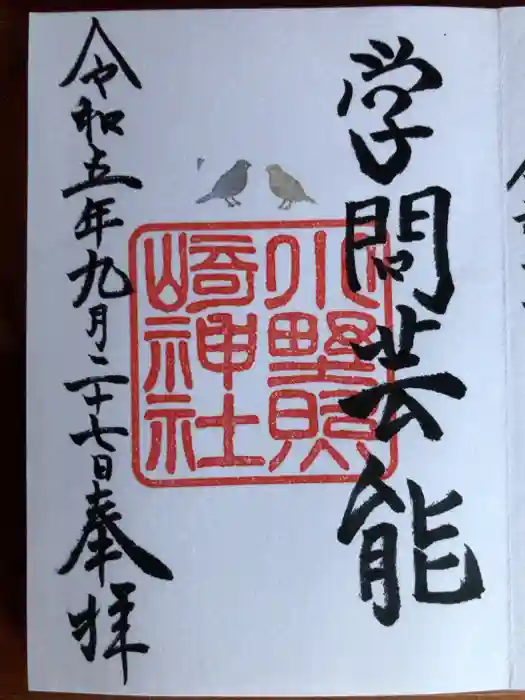 学問芸能
小野照
崎神社
令和五年九月二十七日奉拝